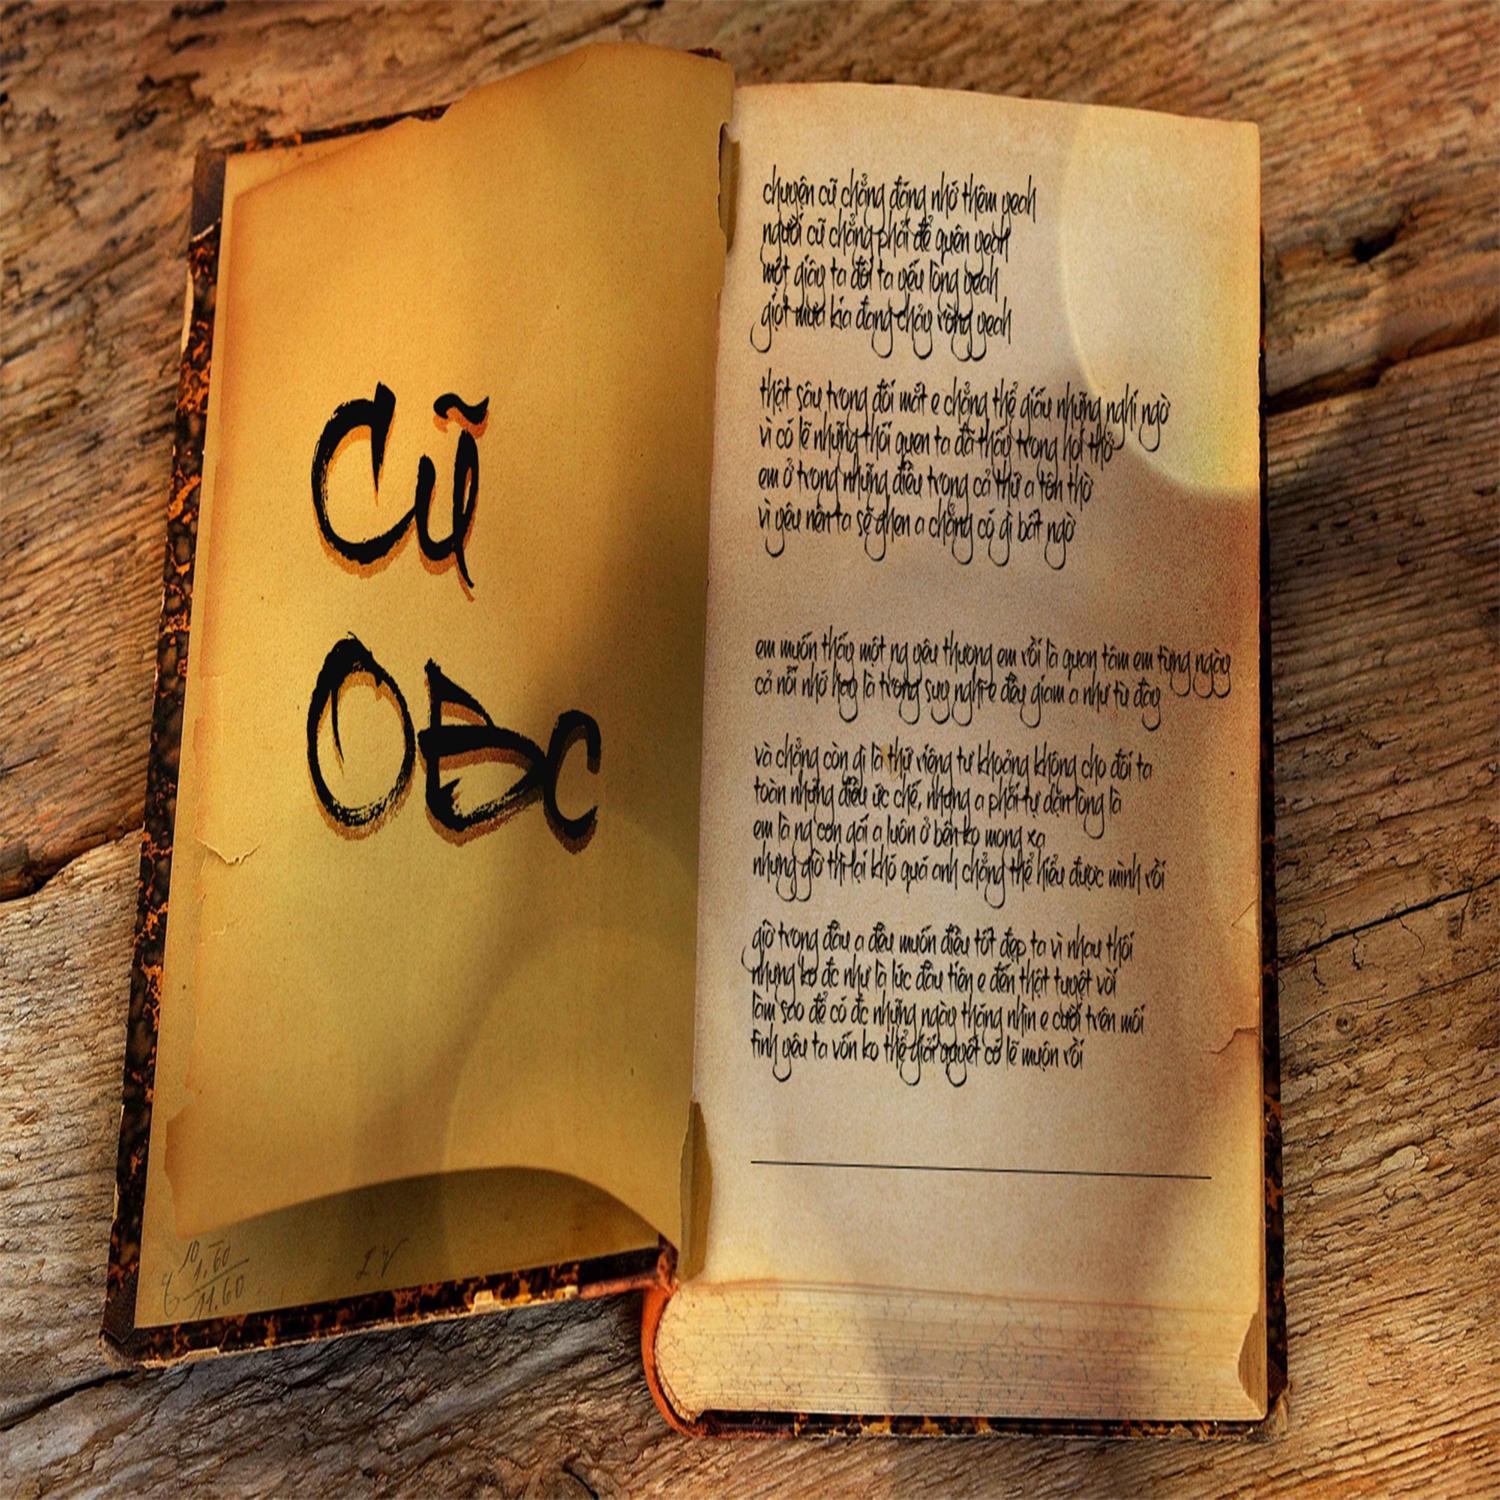 Cũ
OĐc
chuyện cũ chẳng đáng nhớ thêm yeah
người cũ chẳng phải để quên yeah
một giây ta đôi ta yếu lòng yeah
giọt mưa kia đang chảy ròng yeah
thật sâu trong đôi mắt e chẳng thể giấu những nghi ngờ
vì có lẽ những thói quen ta đã thấy trong hơi thở
em ở trong những điều trong cả thứ a tôn thờ
vì yêu nên ta sẽ ghen a chẳng có gì bất ngờ
em muốn thấy một ng yêu thương em rồi là quan tâm em từng ngày
cả nỗi nhớ hay là trong suy nghĩ e đều giam a như tù đày
và chẳng còn gì là thứ riêng tư khoảng không cho đôi ta
toàn những điều ức chế, nhưng a phải tự dặn lòng là
em là ng con gái a luôn ở bên ko mong xa
nhưng giờ thì lại khó quá anh chẳng thể hiểu được mình rồi
giờ trong đầu a đều muốn điều tốt đẹp ta vì nhau thôi
nhưng ko đc như là lúc đầu tiên e đến thật tuyệt vời
làm sao để có đc những ngày tháng nhìn e cười trên môi
tình yêu ta vốn ko thể giải quyết có lẽ muộn rồi
10
1.60
11.60